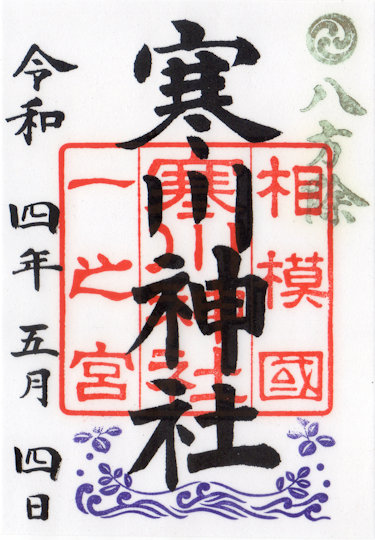 八方除
相模國
寒川神社
一之宮
寒川神社
令和 四年 五月 四日